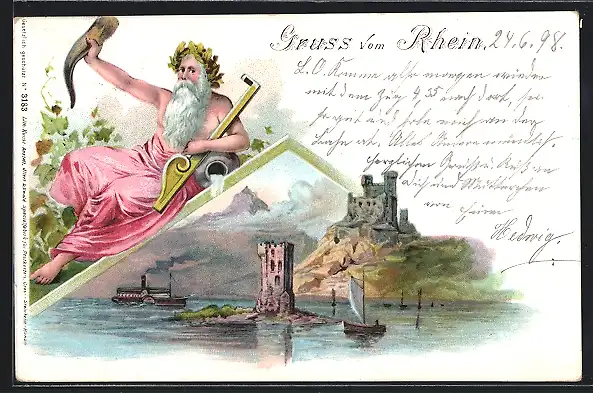 Gruss vom Rhein. 24.6.98.
L. O. Komme also morgen wieder
mit dem Zug 9,35 nach dort, sei
so gut und hole mich an der
Bahn ab. Alles Andere mündlich.
Herzlichen Gruss u. Kuss an
Dich und Mütterchen
von Eurer
Hedwig.
Gesetzlich geschützt No 3183